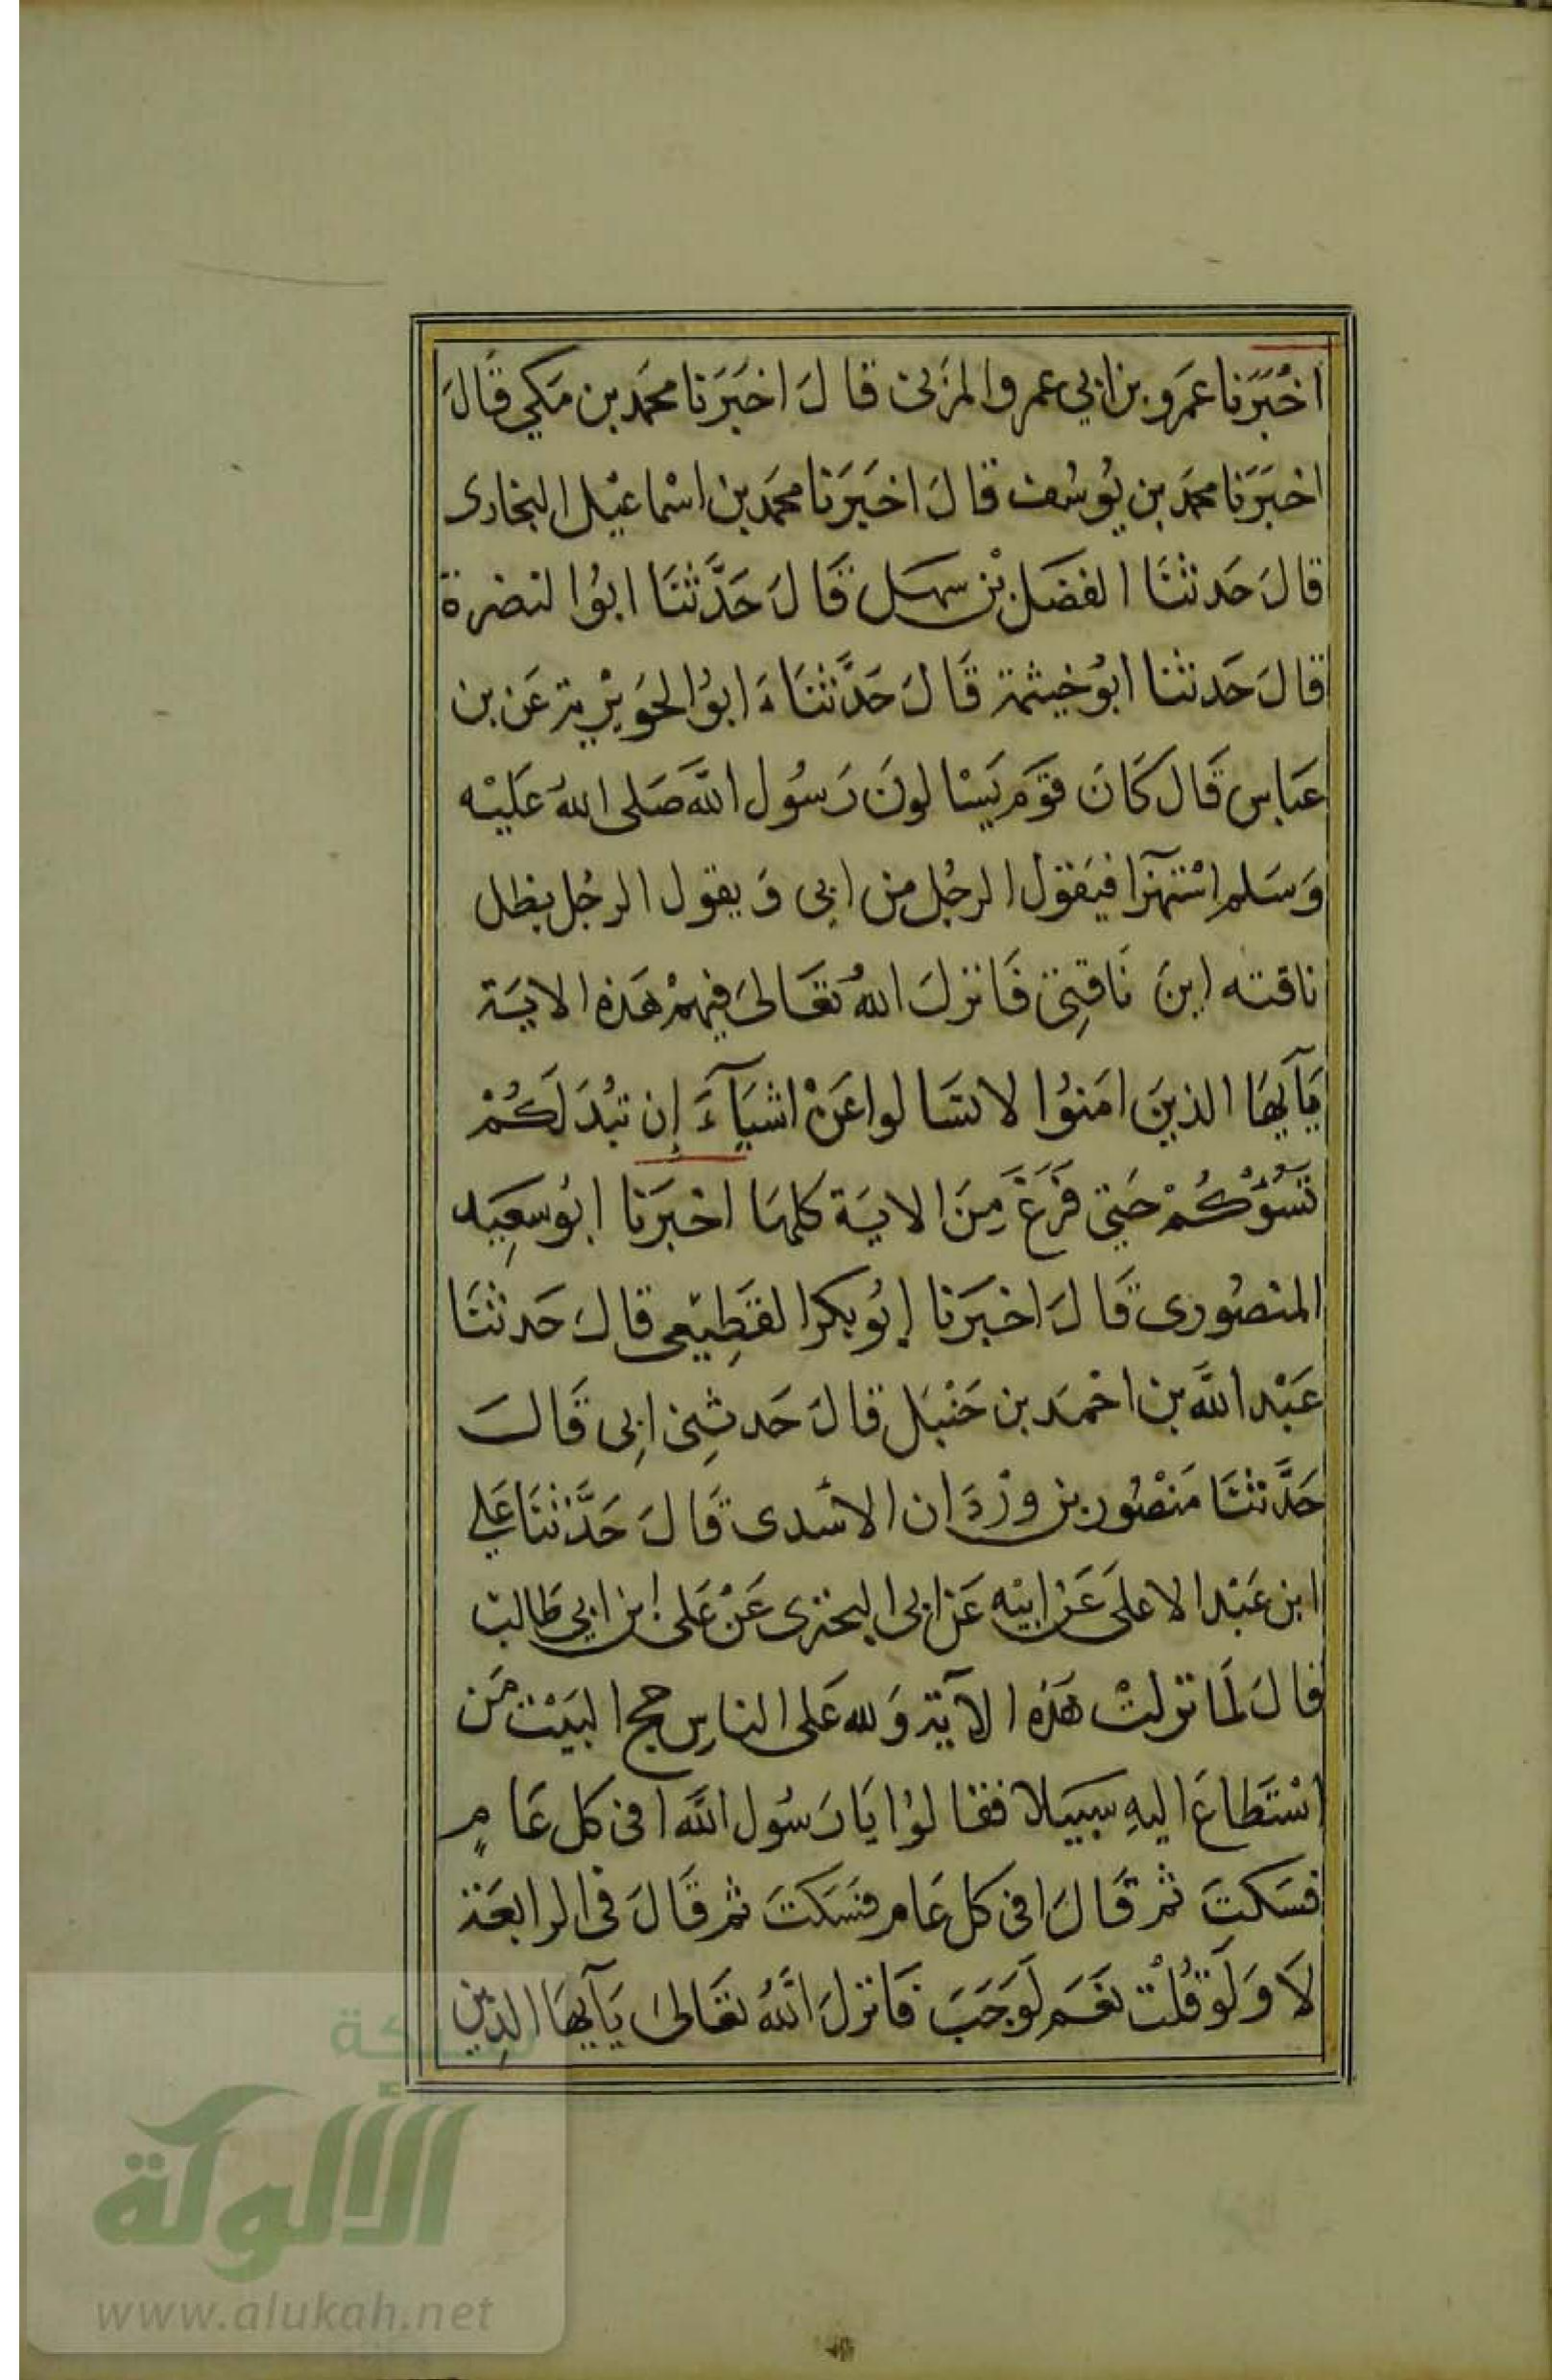 اخْبَرَنا عَمرو بن ابي عمرو المزَنى قا لَ اخبَرَنا محمَد بن مَكي قَالَ
اخبَرَنا محمَد بن يُوسُف قا لَ اخبَرَنا محمَد بن اسْماعيْل البخارى
قا لَ حَدثنَا الفضَل بْن سهَل قَا لَ حَدَّثنَا ابوُا لنضرة
قا لَ حَدثنا ابُو خيثمة قَا لَ حَدَّثنَاءَ ابوُا لحوَيْرية عَن بن
عَباس قَال كَانَ قوَم يَسْا لونَ رَسُول اللَّه صَلى اللهُ عَليْه
وَسَلم اسْتهزآ فيَقول الرجُل من ابى وَ يقول الرجُل بظل
ناقته اينَ نَاقتِى فَا نزلَ اللهُ تعَالىَ فيهمْ هَذه الايَة
يَآيهَا الذينَ امَنوُا لا تسَا لوا عَنْ اشيَآءَ إن تبُدَ لَكُمْ
تَسُؤكُمْ حَتيَ فَرَغَ مِنَ الايَة كلهَا اخبَرَنا ابُو سعِيَد
المنصُورى قَا لَ اخبَرَنا ابُو بكر القَطِيعى قا لَ حَدثنَا
عَبْد اللَّه بن احْمَد بن حَنْبَل قا لَ حَد ثِنى ابِى قَالَ
حَدَّثنَا مَنْصُور بن وزْدَان الاسَدى قَا لَ حَدَّثنَا عَلي
ابن عَبْد الاعلىَ عَنْ ابيْه عَن ابى البخترى عَنْ عَلى ابن ابي طَالب
قا لَ لمَا نزلتْ هَذه الآيَة وَلله عَلى الناسِ حج البَيْت مَن
اسْتَطاعَ اليهِ سَبيَلا فقا لوُا يَا رَسُول اللَّه افى كل عَامٍ
فسَكتَ ثم قَا لَ افى كل عَام فسَكَتَ ثم قَا لَ فى الرابعَة
لاَ وَ لَو قُلْت نعَم لَوَجَبَ فَا نزلَ اللَّهُ تعَالىَ يَآيهَا الذِين
شبكة
الألوكة
www.alukah.net